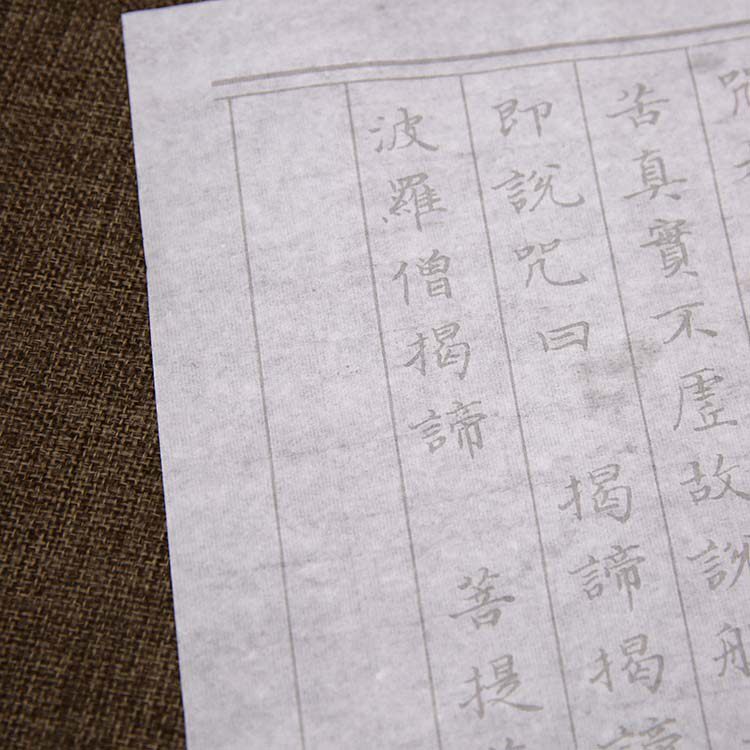 咒
苦真實不虛故說般
即說咒曰 揭諦揭諦
波羅僧揭諦 菩提